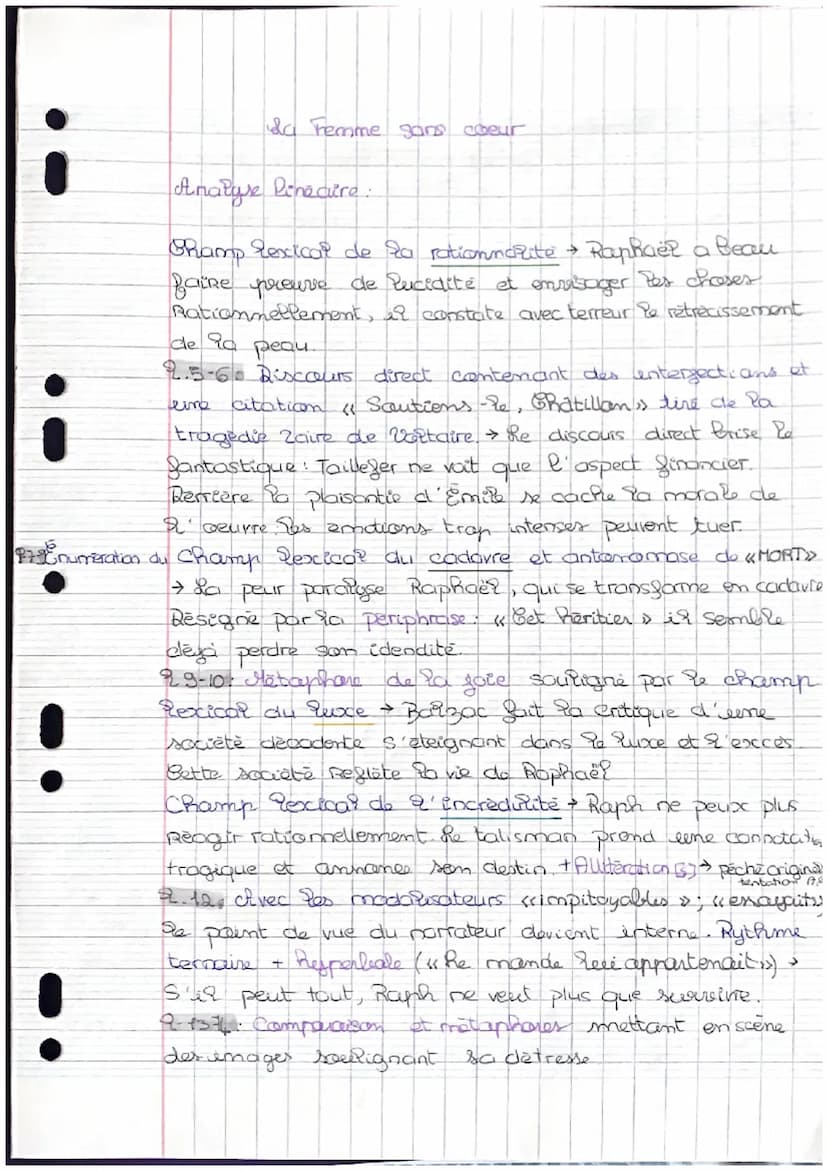 La Femme sans coeur
Analyse linéaire :
Champ lexical de la rationnalité → Raphaël a beau
faire preuve de lucidité et envisager les choses
rationnellement, il constate avec terreur le rétrécissement
de la peau.
l.5-6: Discours direct contenant des interjections et
une citation « Soutiens-le, Châtillon » tiré de la
tragédie Zaïre de Voltaire. → Le discours direct brise le
fantastique : Taillefer ne voit que l'aspect financier.
Derrière la plaisantie d'Émile se cache la morale de
l'oeuvre. Les émotions trop intenses peuvent tuer.
Énumération du Champ lexical du cadavre et antonomase de « MORT»
→ La peur paralyse Raphaël, qui se transforme en cadavre
Désigné par la périphrase : « Cet héritier » il semble
déjà perdre son idendité.
l 9-10: Métaphore de la joie souligné par le champ
lexical du luxe → Balzac fait la critique d'une
société décadente s'éteignant dans le luxe et l'excès.
Cette société reflète la vie de Raphaël
Champ lexical de l'incrédulité → Raph ne peux plus
réagir rationnellement. Le talisman prend une connotati
tragique et annonce son destin. + Allitération [s] → péché origina
tentation
l.12: Avec les modalisateurs « impitoyables » ; « essayait»
le point de vue du narrateur devient interne. Rythme
ternaire + hyperbole (« Le monde lui appartenait ») →
S'il peut tout, Raph ne veut plus que survivre.
Comparaison et métaphores mettant en scène
des images soulignant sa détresse